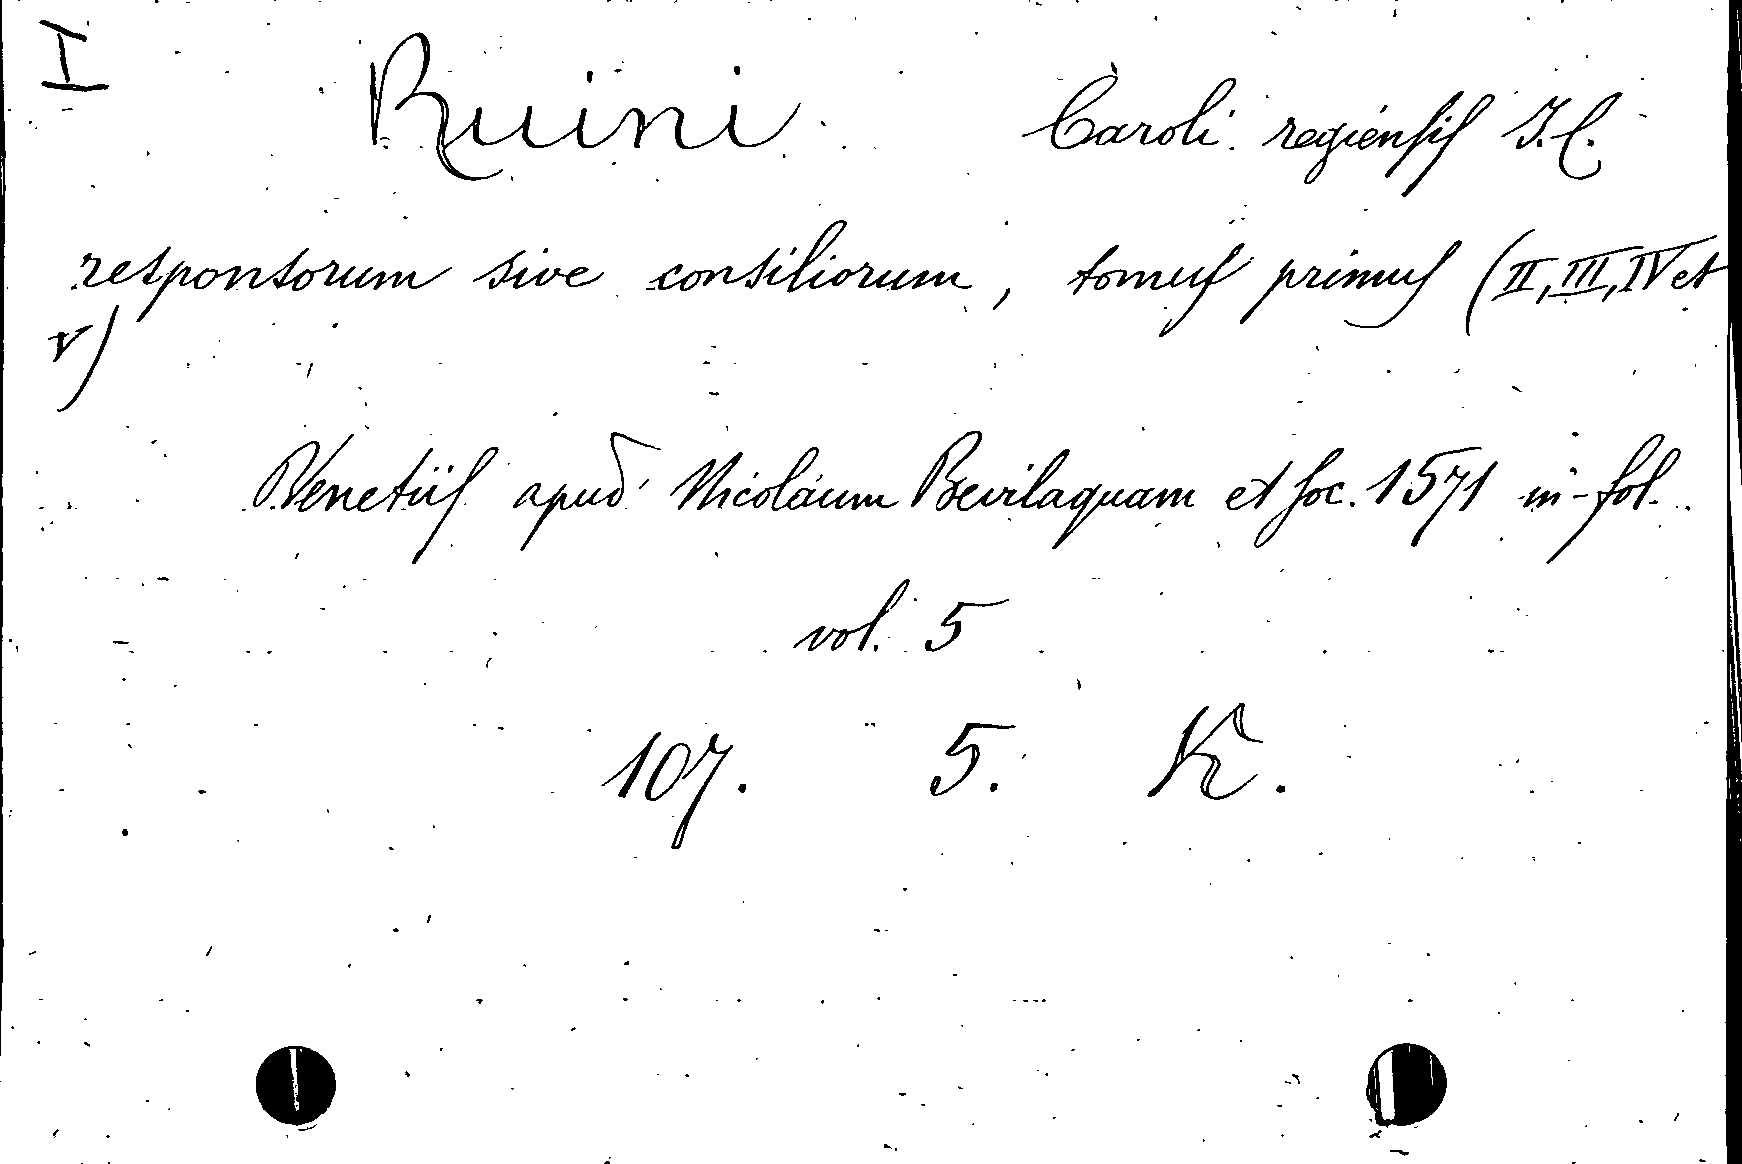 I
Ruini Caroli regiensis I. C.
responsorum sive consiliorum, tomus primus (II, III, IV et
V)
Venetiis apud Nicolaum Bevilaquam et soc. 1571 in-fol.
vol. 5
107. 5. K.